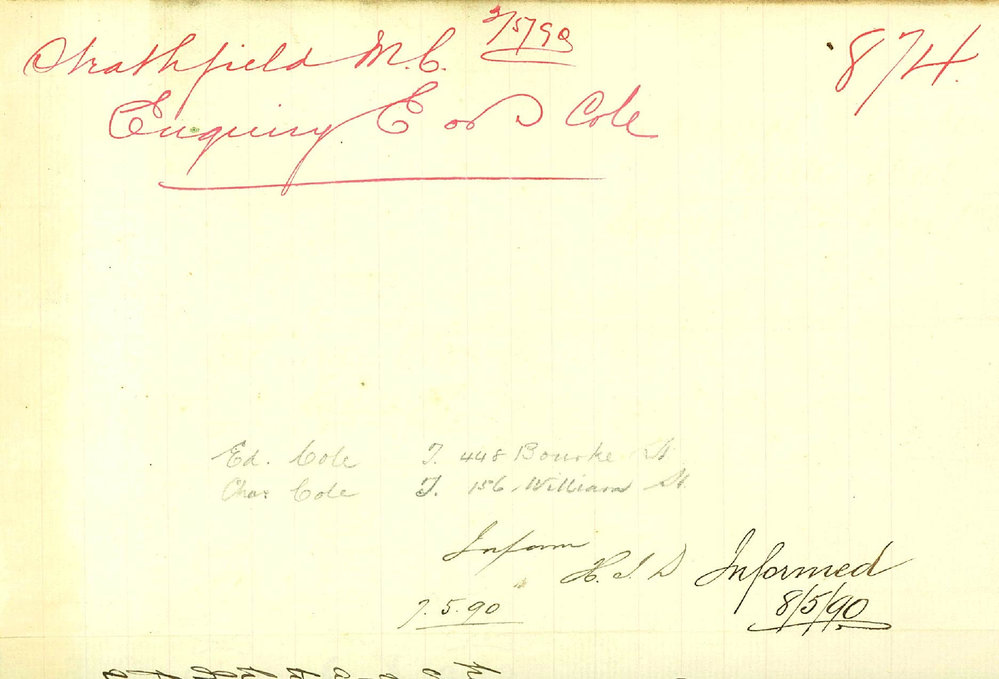 Strathfield M.C. 2/5/90 874.
Enquiry E or D Cole
Ed. Cole T. 448 Bourke St
Chas Cole T. 156 William St.
Inform
H. I. D Informed
7.5.90 8/5/90